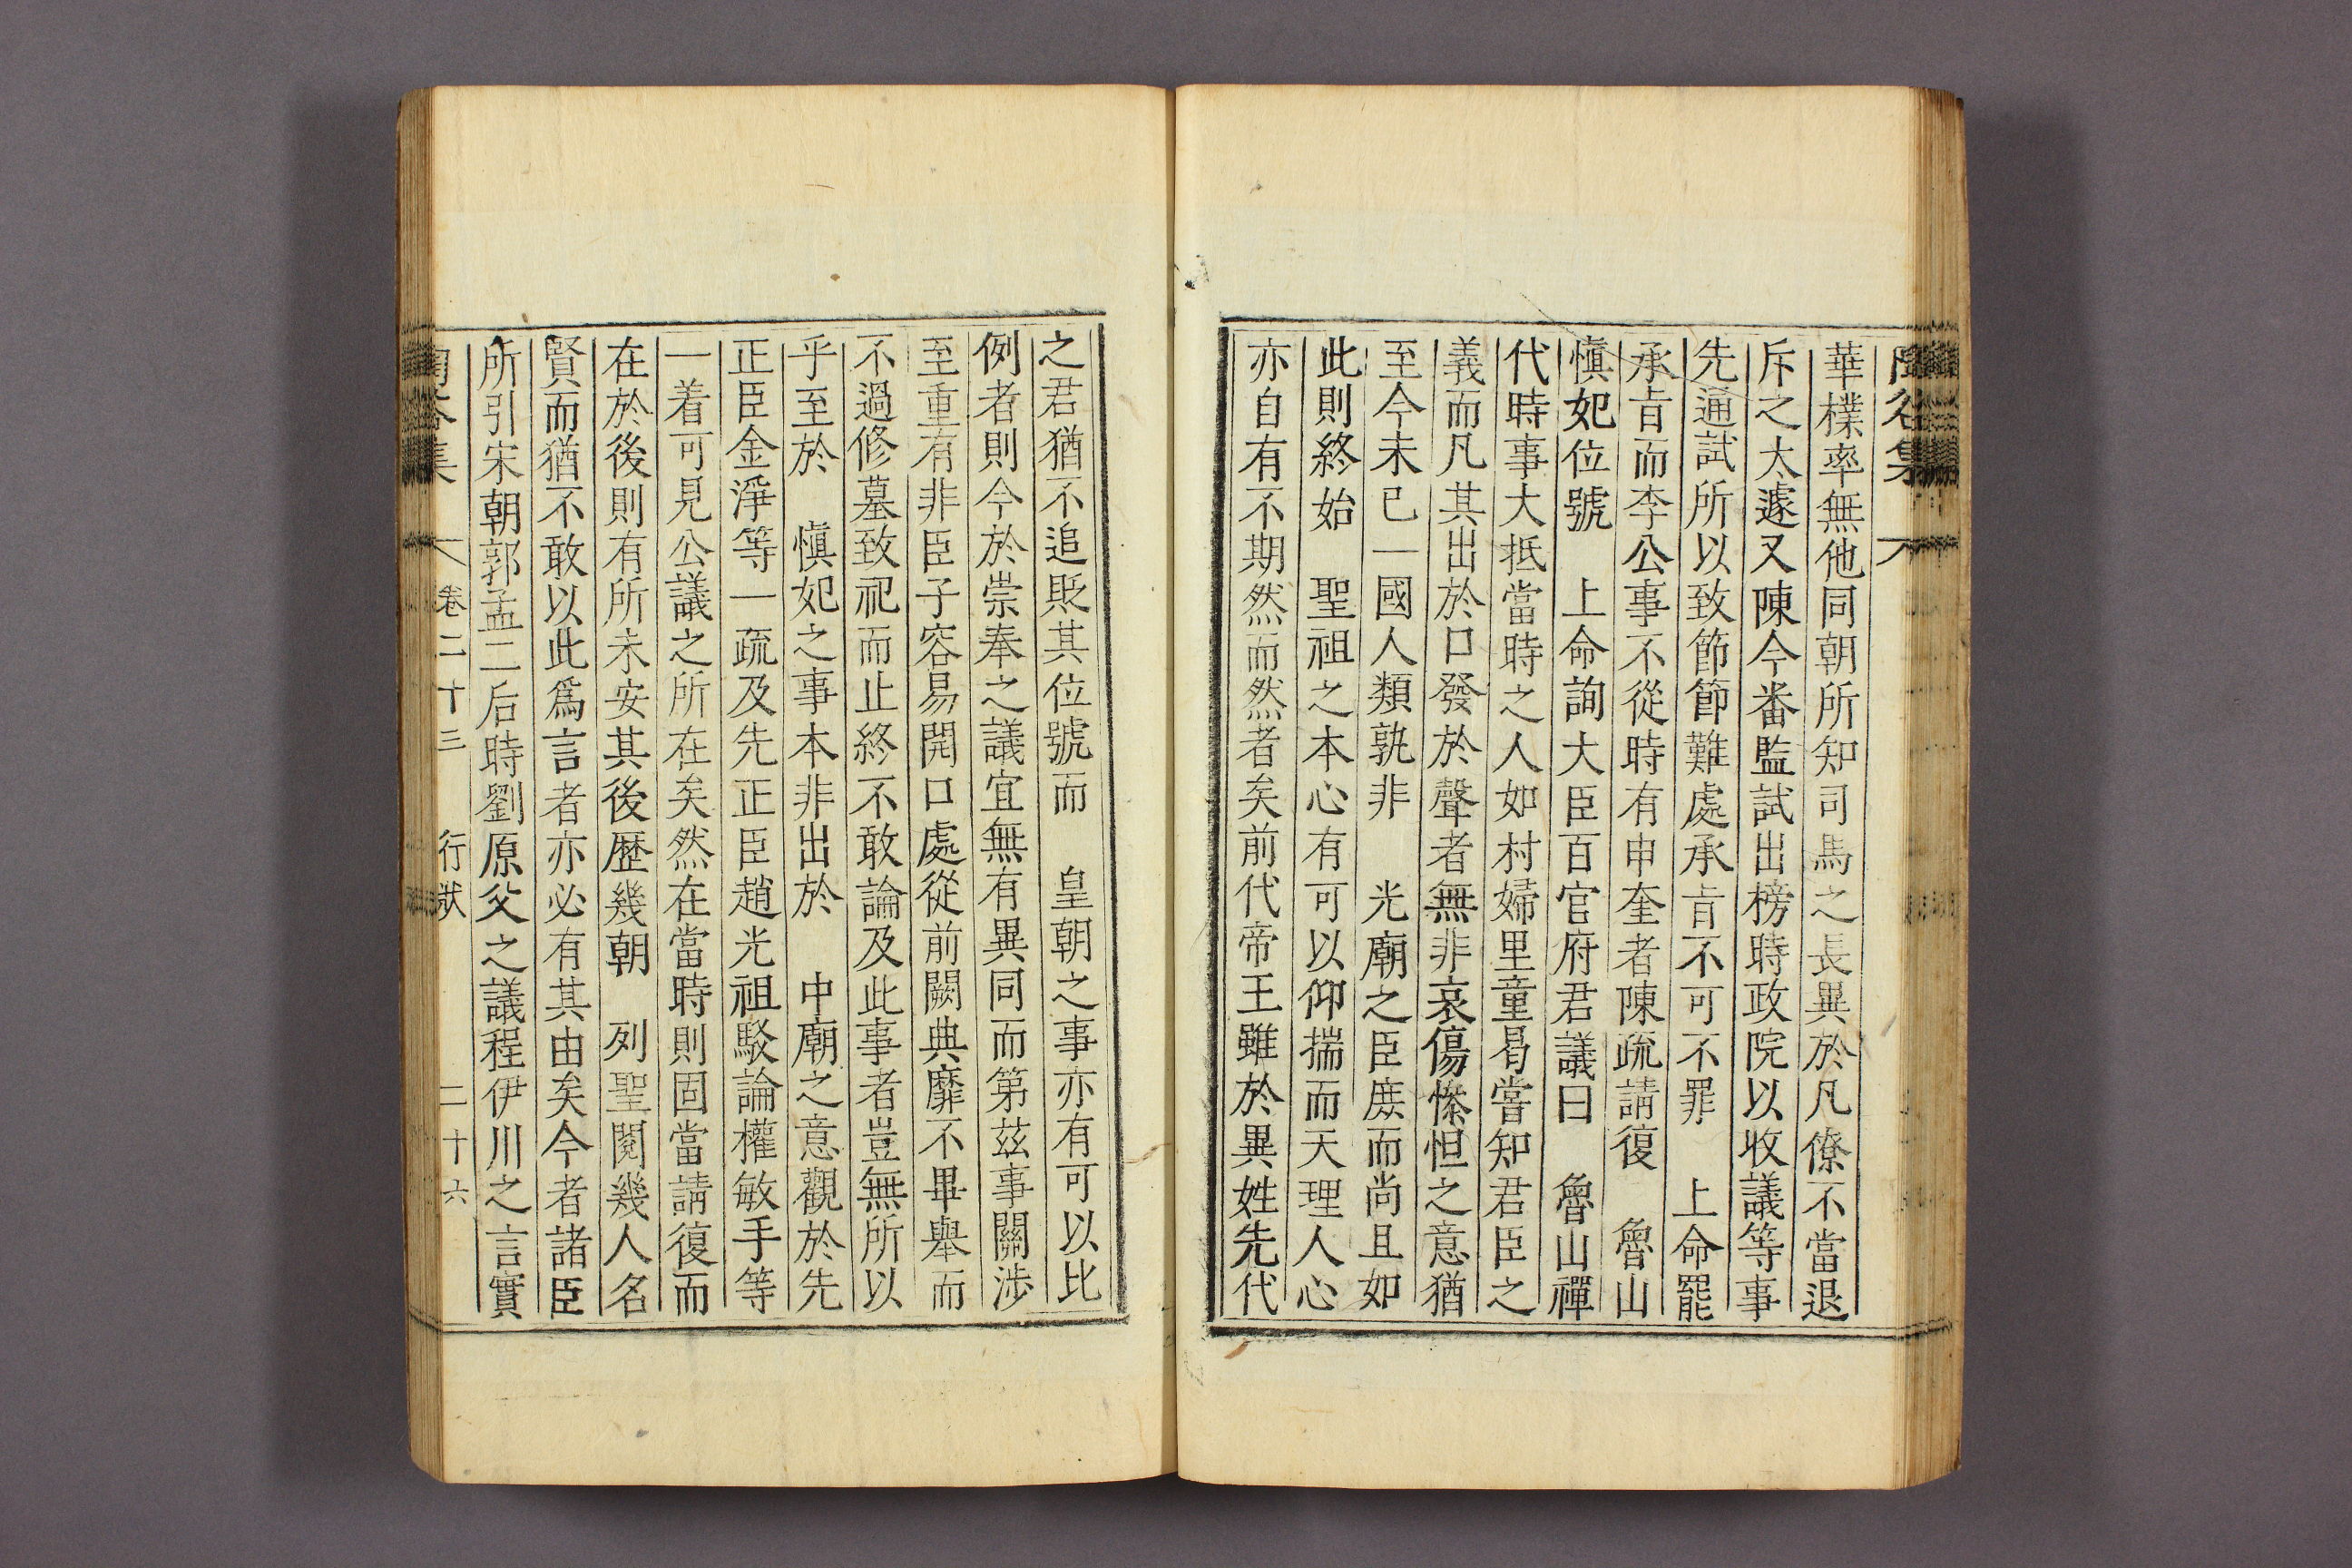 華樸率無他同朝所知司馬之長異於凡僚不當退
斥之太遽又陳今番監試出榜時政院以收議等事
先通試所以致節節難處承旨不可不罪 上命罷
承旨而李公事不從時有申奎者陳疏請復 魯山
愼妃位號 上命詢大臣百官府君議曰 魯山禪
代時事大抵當時之人如村婦里童曷嘗知君臣之
義而凡其出於口發於聲者無非哀傷慘怛之意猶
至今未已一國人類孰非 光廟之臣庶而尚且如
此則終始 聖祖之本心有可以仰揣而天理人心
亦自有不期然而然者矣前代帝王雖於異姓先代
之君猶不追貶其位號而 皇朝之事亦有可以比
例者則今於崇奉之議宜無有異同而第茲事關涉
至重有非臣子容易開口處從前闕典靡不畢舉而
不過修墓致祀而止終不敢論及此事者豈無所以
乎至於 愼妃之事本非出於 中廟之意觀於先
正臣金淨等一疏及先正臣趙光祖駁論權敏手等
一着可見公議之所在矣然在當時則固當請復而
在於後則有所未安其後歷幾朝 列聖閱幾人名
賢而猶不敢以此爲言者亦必有其由矣今者諸臣
所引宋朝郭孟二后時劉原父之議程伊川之言實
卷二十三 行狀 二十六